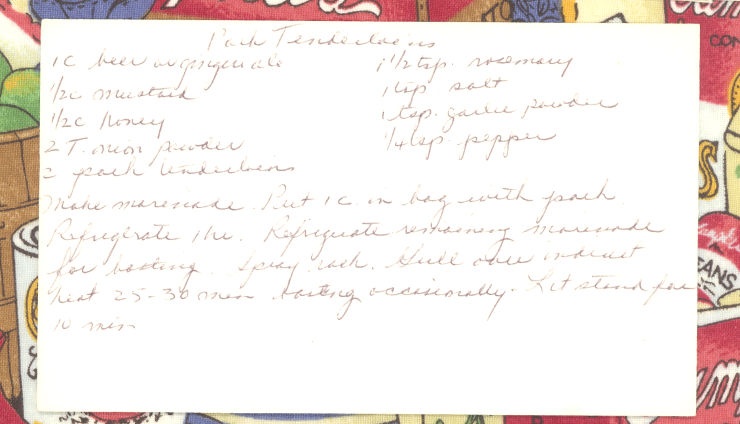 Pork Tenderloins
1 C beer or gingerale
1/2 C mustard
1/2 C honey
2 T. onion powder
2 pork tenderloins
1 1/2 tsp. rosemary
1 tsp salt
1 tsp. garlic powder
1/4 tsp. pepper
Make marinade. Put 1 C. in bag with pork.
Refrigerate 1 hr. Refrigerate remaining marinade
for basting. Spray rack. Grill over indirect
heat 25-30 min basting occasionally. Let stand for
10 min
CON
EANS